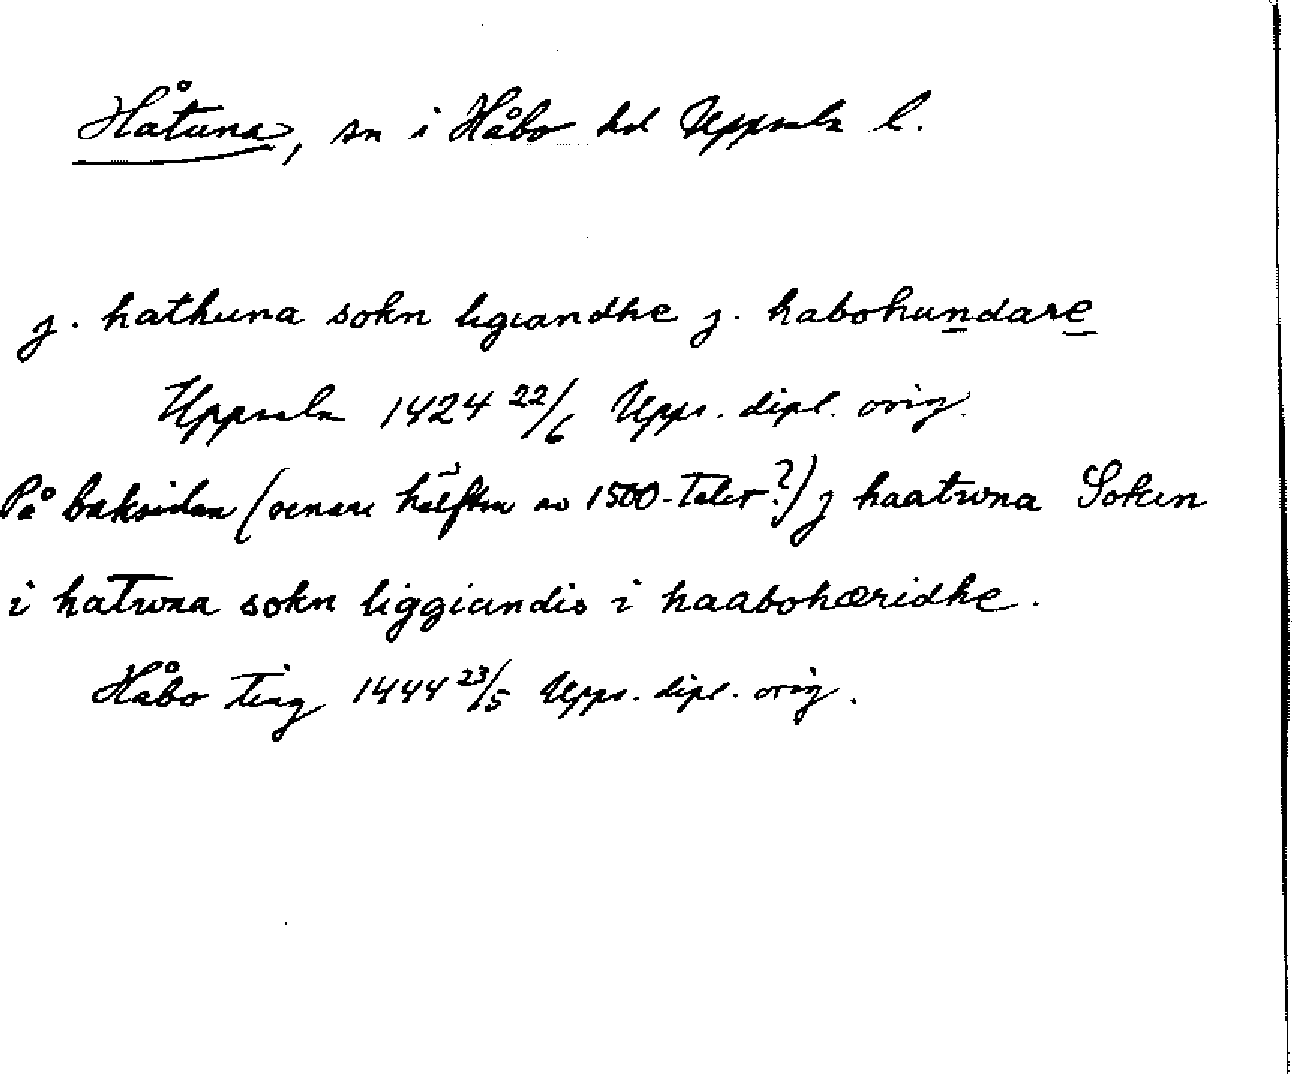 Håtuna, sn i Håbo hd Uppsala l.
j. hathuna sokn ligiandhe j. habohundare
Uppsala 1424 22/6 Upps. dipl. orig.
På baksidan (senare hälften av 1500-talet?) j haatwna Soken
i hatwna sokn liggiandis i haabohæridhe.
Håbo ting 1444 23/5 Upps. dipl. orig.